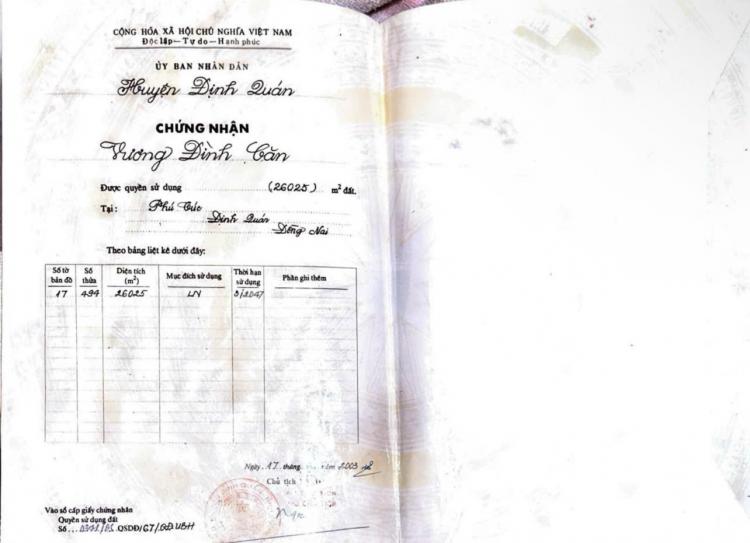 CỘNG HÒA XÃ HỘI CHỦ NGHĨA VIỆT NAM
Độc lập - Tự do - Hạnh phúc
ỦY BAN NHÂN DÂN
Huyện Định Quán
CHỨNG NHẬN
Vương Đình Căn
Được quyền sử dụng (26025) m² đất.
Tại: Phú Cúc
Định Quán
Đồng Nai
Theo bảng liệt kê dưới đây:
Số tờ bản đồ Số thửa Diện tích (m²) Mục đích sử dụng Thời hạn sử dụng Phần ghi thêm
17 494 26025 LN 8/2047
Ngày 17 tháng năm 2003
Chủ tịch
Vào sổ cấp giấy chứng nhận
Quyền sử dụng đất
Số QSDĐ/